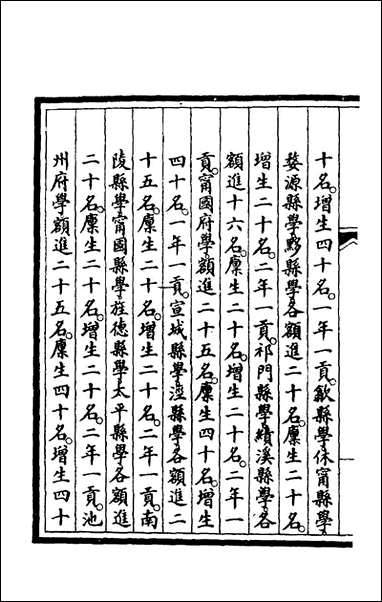 十名。增生四十名。一年一貢。歙縣學休甯縣學
婺源縣學黟縣學各額進二十名。廩生二十名。
增生二十名。二年一貢。祁門縣學績溪縣學各
額進十六名。廩生二十名。增生二十名。二年一
貢。甯國府學額進二十五名。廩生四十名。增生
四十名。一年一貢。宣城縣學涇縣學各額進二
十五名。廩生二十名。增生二十名。二年一貢。南
陵縣學甯國縣學旌德縣學太平縣學各額進
二十名。廩生二十名。增生二十名。二年一貢。池
州府學額進二十五名。廩生四十名。增生四十